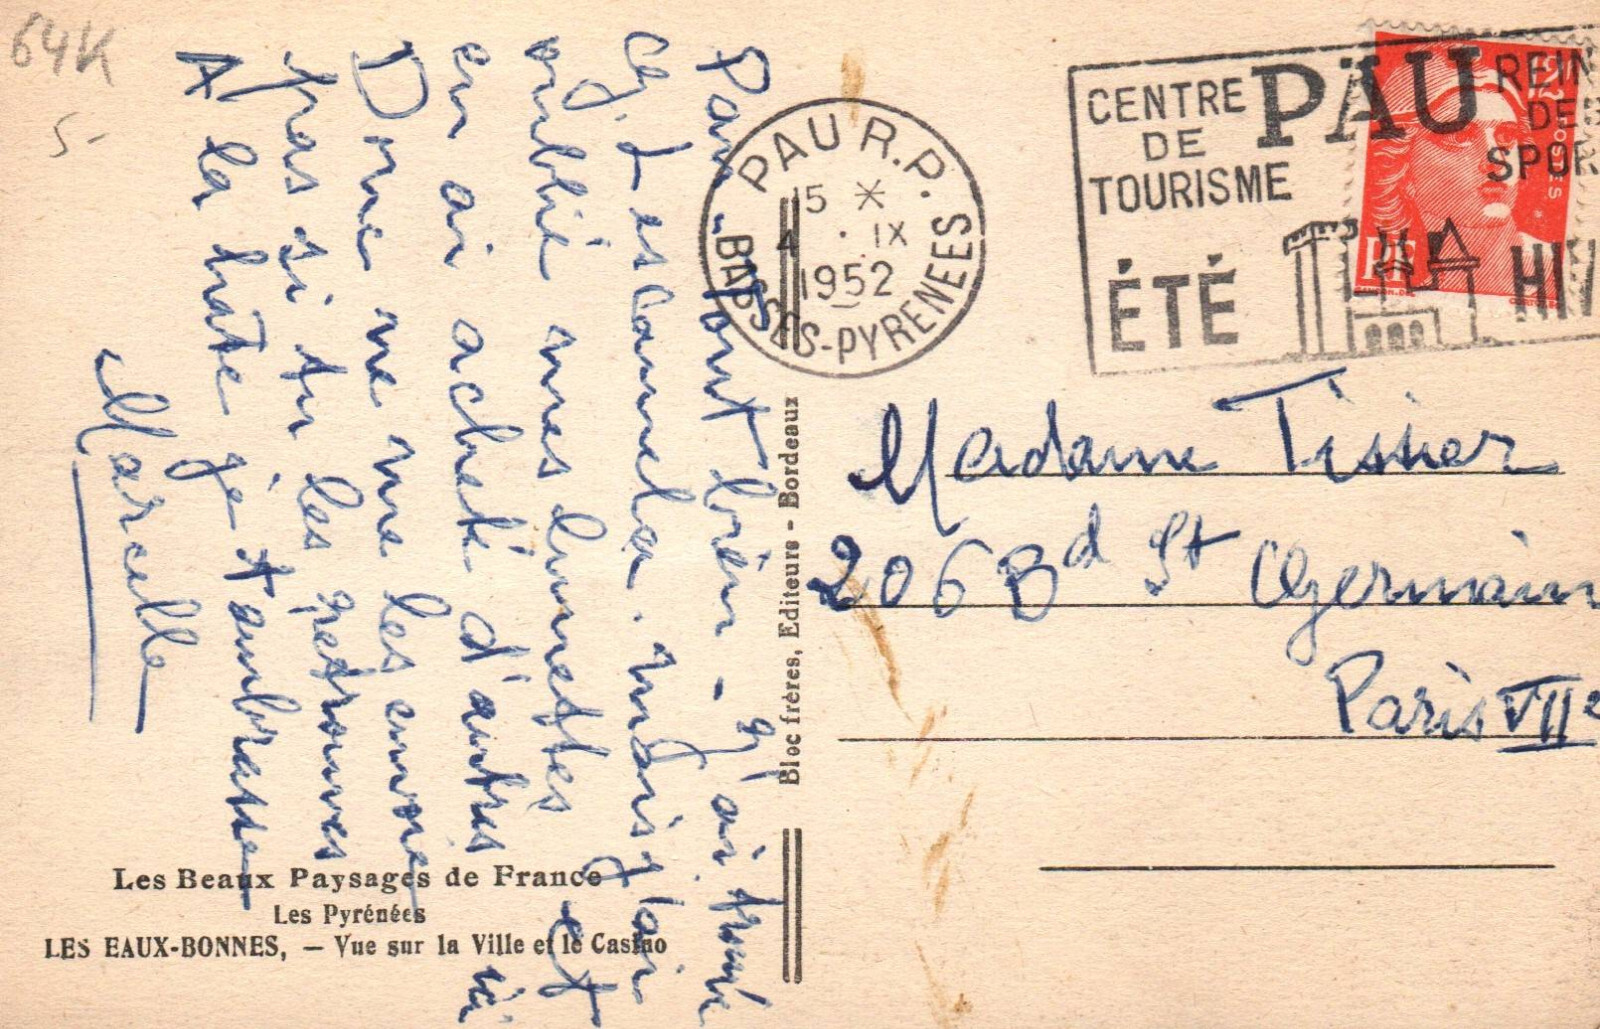 64K
5.-
Pau - tout bien - J'ai trouvé
Cj. Lescamela. Mais j'ai
oublié mes lunettes et
en ai acheté d'autres ici
Donc ne me les envoie
pas si tu les retrouves
A la hâte je t'embrasse
Marcelle
PAU R.P.
15 *
4 . IX
1952
BASSES-PYRENEES
CENTRE
DE
TOURISME
PAU
REIN
DES
SPOR
ÉTÉ
HIV
POSTES
RF
Bloc frères, Editeurs - Bordeaux
Madame Tissier
206 Bd St Germain
Paris VIIe
Les Beaux Paysages de France
Les Pyrénées
LES EAUX-BONNES, — Vue sur la Ville et le Casino